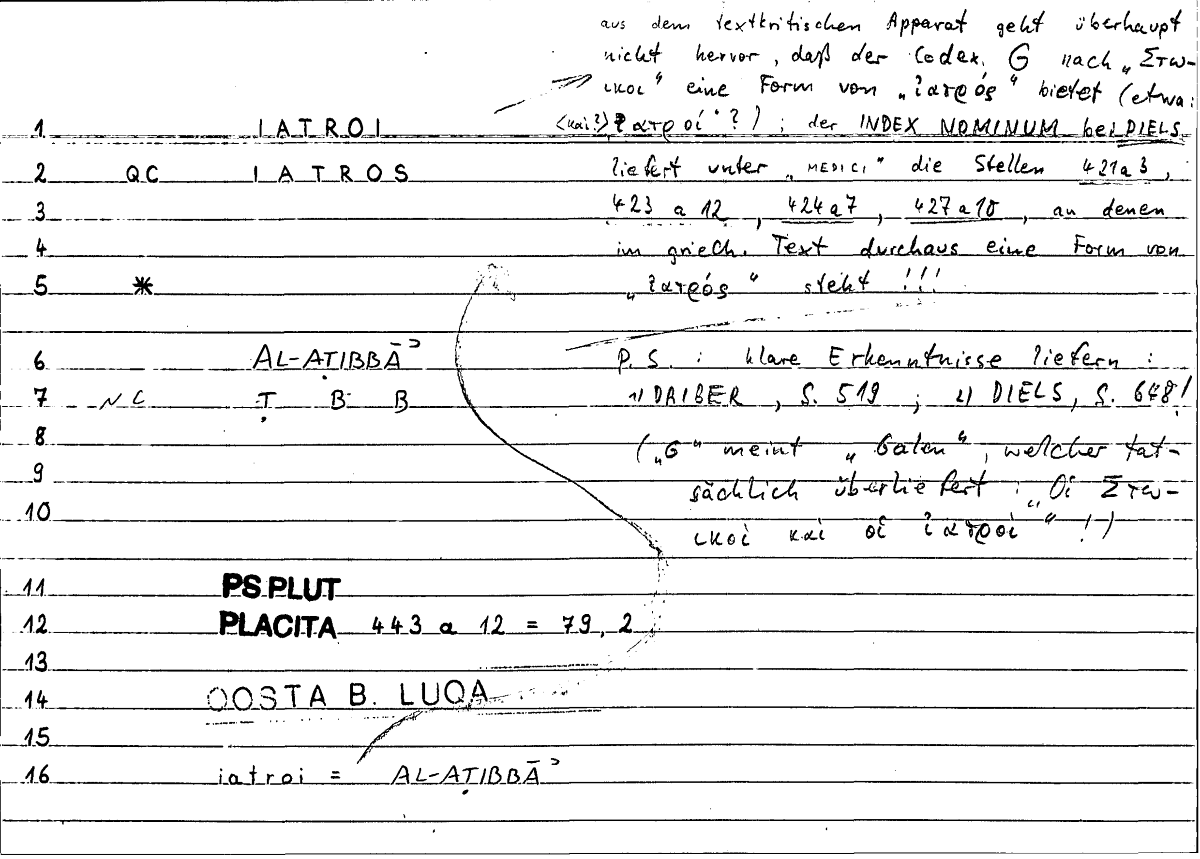 aus dem textkritischen Apparat geht überhaupt
nicht hervor, daß der Codex G nach „Στω-
ικοὶ“ eine Form von „ἰατρός“ bietet (etwa:
1 IATROI <καὶ?> ἰατροί“?) ; der INDEX NOMINUM bei DIELS
2 QC IATROS liefert unter „MEDICI“ die Stellen 421a3,
3 423 a 12, 424a7, 427a10, an denen
4 im griech. Text durchaus eine Form von
5 * „ἰατρός“ steht !!!
6 AL-AṬIBBĀʾ P.S. : klare Erkenntnisse liefern :
7 NC Ṭ B B 1) DAIBER, S. 519 ; 2) DIELS, S. 648!
8 („G“ meint „Galen“, welcher tat-
9 sächlich überliefert : „Οἱ Στω-
10 ικοὶ καὶ οἱ ἰατροὶ“ !)
11 PS.PLUT
12 PLACITA 443 a 12 = 79, 2
13
14 QOSTA B. LUQA
15
16 iatroi = AL-AṬIBBĀʾ